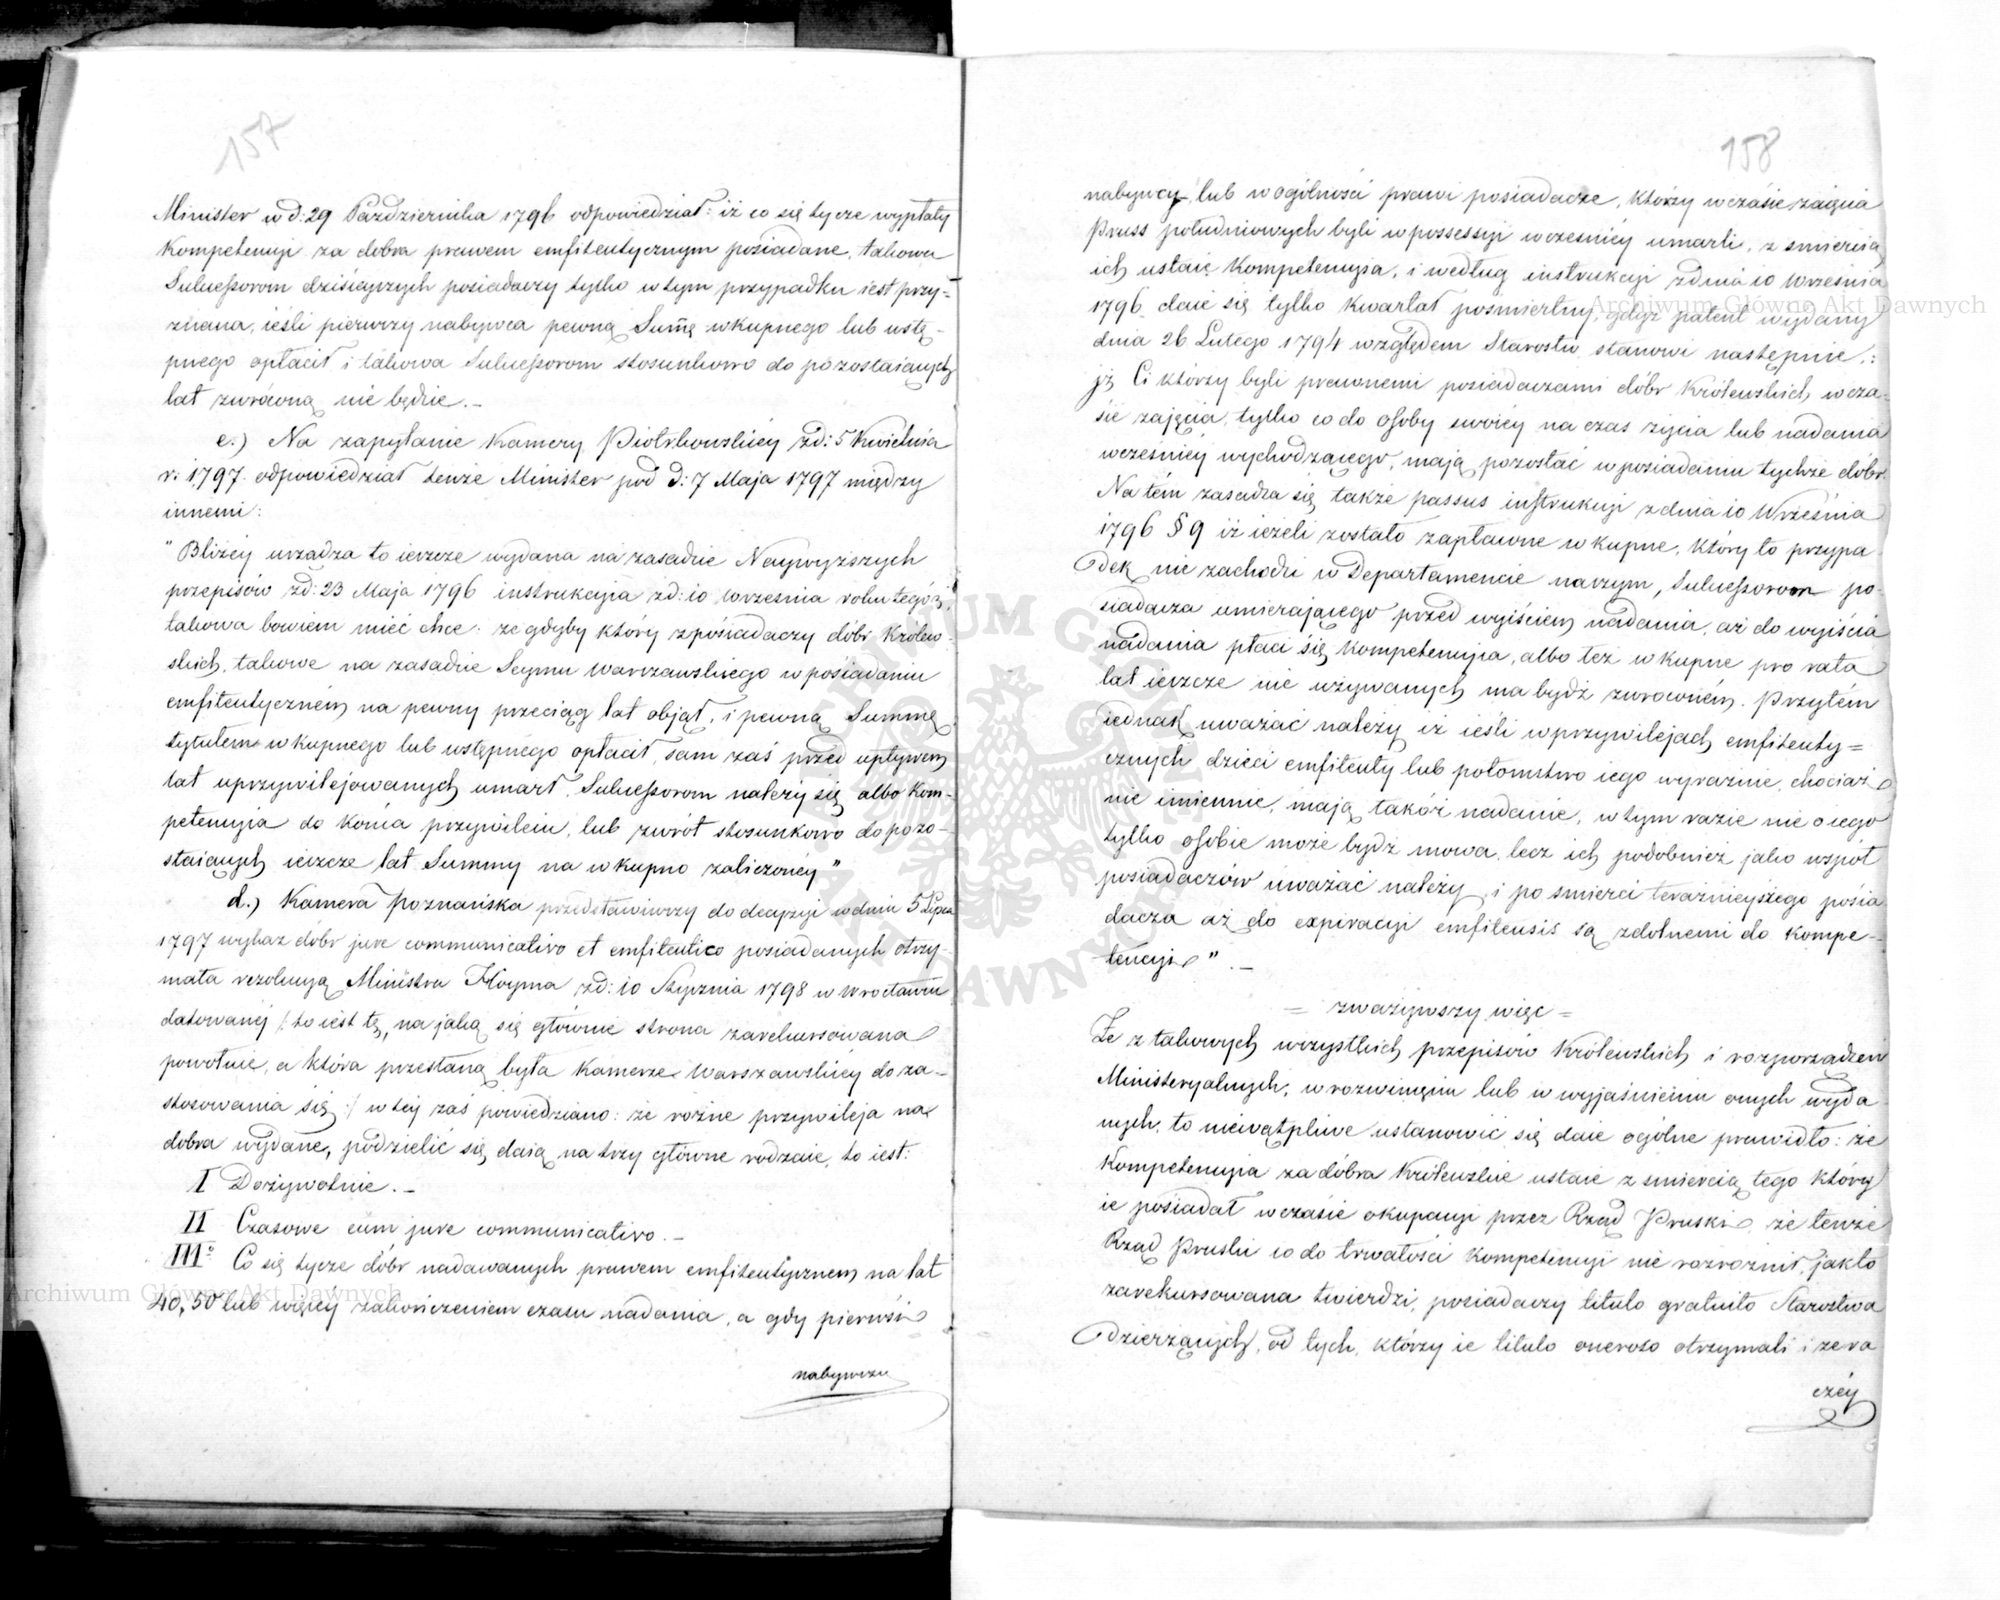 157
Minister w d: 29 Października 1796 odpowiedział: iż co się tycze wypłaty
Kompetencyi za dobra prawem emfiteutycznym posiadane, takowa
Sukcessorom dzisieyszych posiadaczy tylko w tym przypadku iest przy-
znana, ieśli pierwszy nabywca pewną Summę wkupnego lub wstę-
pnego opłacił i takowa Sukcessorom stosunkowo do pozostaiących
lat zwróconą nie będzie. –
c.) Na zapytanie Kamery Piotrkowskiéy z d: 5 Kwietnia
r: 1797. odpowiedział tenże Minister pod d: 7 Maja 1797 między
innemi:
"Bliżéy urządza to ieszcze wydana na zasadzie Naywyższych
przepisów z d: 23 Maja 1796 instrukcyia z d: 10 Września roku tegóż,
takowa bowiem mieć chce: że gdyby który z posiadaczy dóbr Królew-
skich, takowe na zasadzie Seymu Warszawskiego w posiadaniu
emfiteutyczném na pewny przeciąg lat objął, i pewną Summę
tytułem wkupnego lub wstępnego opłacił, sam zaś przed upływem
lat uprzywilejowanych umarł, Sukcessorom należy się albo Kom-
petencyia do końca przywileiu, lub zwrót stosunkowo do pozo-
staiących ieszcze lat Summy na wkupno zaliczonéy"
d.) Kamera Poznańska przedstawiwszy do decyzyi w dniu 5 Lipca
1797 wykaz dóbr jure communicativo et emfiteutico posiadanych otrzy-
mała rezolucyą Ministra Hoyma z d: 10 Stycznia 1798 w Wrocławiu
datowanéy /: to iest tę, na jaką się głównie strona zarekursowana
powołuie, a która przesłaną była Kamerze Warszawskiéy do za-
stosowania się :/ w téy zaś powiedziano: że rożne przywileja na
dobra wydane, podzielić się daią na trzy główne rodzaie, to iest:
I Dożywotnie. –
II Czasowe cum jure communicativo. –
III° Co się tycze dóbr nadawanych prawem emfiteutycznem na lat
40, 50 lub więcéy zakończeniem czasu nadania, a gdy pierwsi
nabywcy
158
nabywcy lub w ogólności prawi posiadacze, którzy w czasie zaięcia
Pruss południowych byli w possessyi wcześniéy umarli, z śmiercią
ich ustaie Kompetencyia, i według instrukcyi z dnia 10 Września
1796 daie się tylko Kwartał pośmiertny, gdyż patent wydany
dnia 26 Lutego 1794 względem Starostw stanowi następnie:
iż Ci którzy byli prawnemi posiadaczami dóbr Królewskich w cza-
sie zajęcia, tylko co do osoby swoiéy na czas życia lub nadania
wcześniéy wychodzącego, mają pozostać w posiadaniu tychże dóbr.
Na tém zasadza się także passus instrukcyi z dnia 10 Września
1796 § 9 iż ieżeli zostało zapłacone wkupne, który to przypa-
dek nie zachodzi w Departamencie naszym, Sukcessorom po-
siadacza umierającego przed wyiściem nadania, aż do wyiścia
nadania płaci się Kompetencyia, albo też wkupne pro rata
lat ieszcze nie używanych ma bydź zwroconém. Przytém
iednak uważać należy iż ieśli w przywilejach emfiteuty=
cznych dzieci emfiteuty lub potomstwo iego wyraźnie, chociaż
nie imiennie, mają takóż nadanie, w tym razie nie o iego
tylko osobie może bydź mowa, lecz ich podobnież jako współ
posiadaczów uważać należy, i po śmierci teraźnieyszego posia-
dacza aż do expiracyi emfiteusis są zdolnemi do Kompe-
tencyi". –
= zważywszy więc =
Że z takowych wszystkich przepisów Królewskich i rozporządzeń
Ministeryalnych, w rozwinięciu lub w wyjaśnieniu onych wyda-
nych, to niewątpliwe ustanowić się daie ogólne prawidło: że
Kompetencyia za dobra Królewskie ustaie z śmiercią tego który
ie posiadał w czasie okupacyi przez Rząd Pruski, że tenże
Rząd Pruski co do trwałości Kompetencyi nie rozroznił, jak to
zarekursowana twierdzi, posiadaczy titulo gratuito Starostwa
dzierzących, od tych, którzy ie titulo oneroso otrzymali i że ra
czéy
Archiwum Główne Akt Dawnych
Archiwum Główne Akt Dawnych
ARCHIWUM GŁÓWNE AKT DAWNYCH